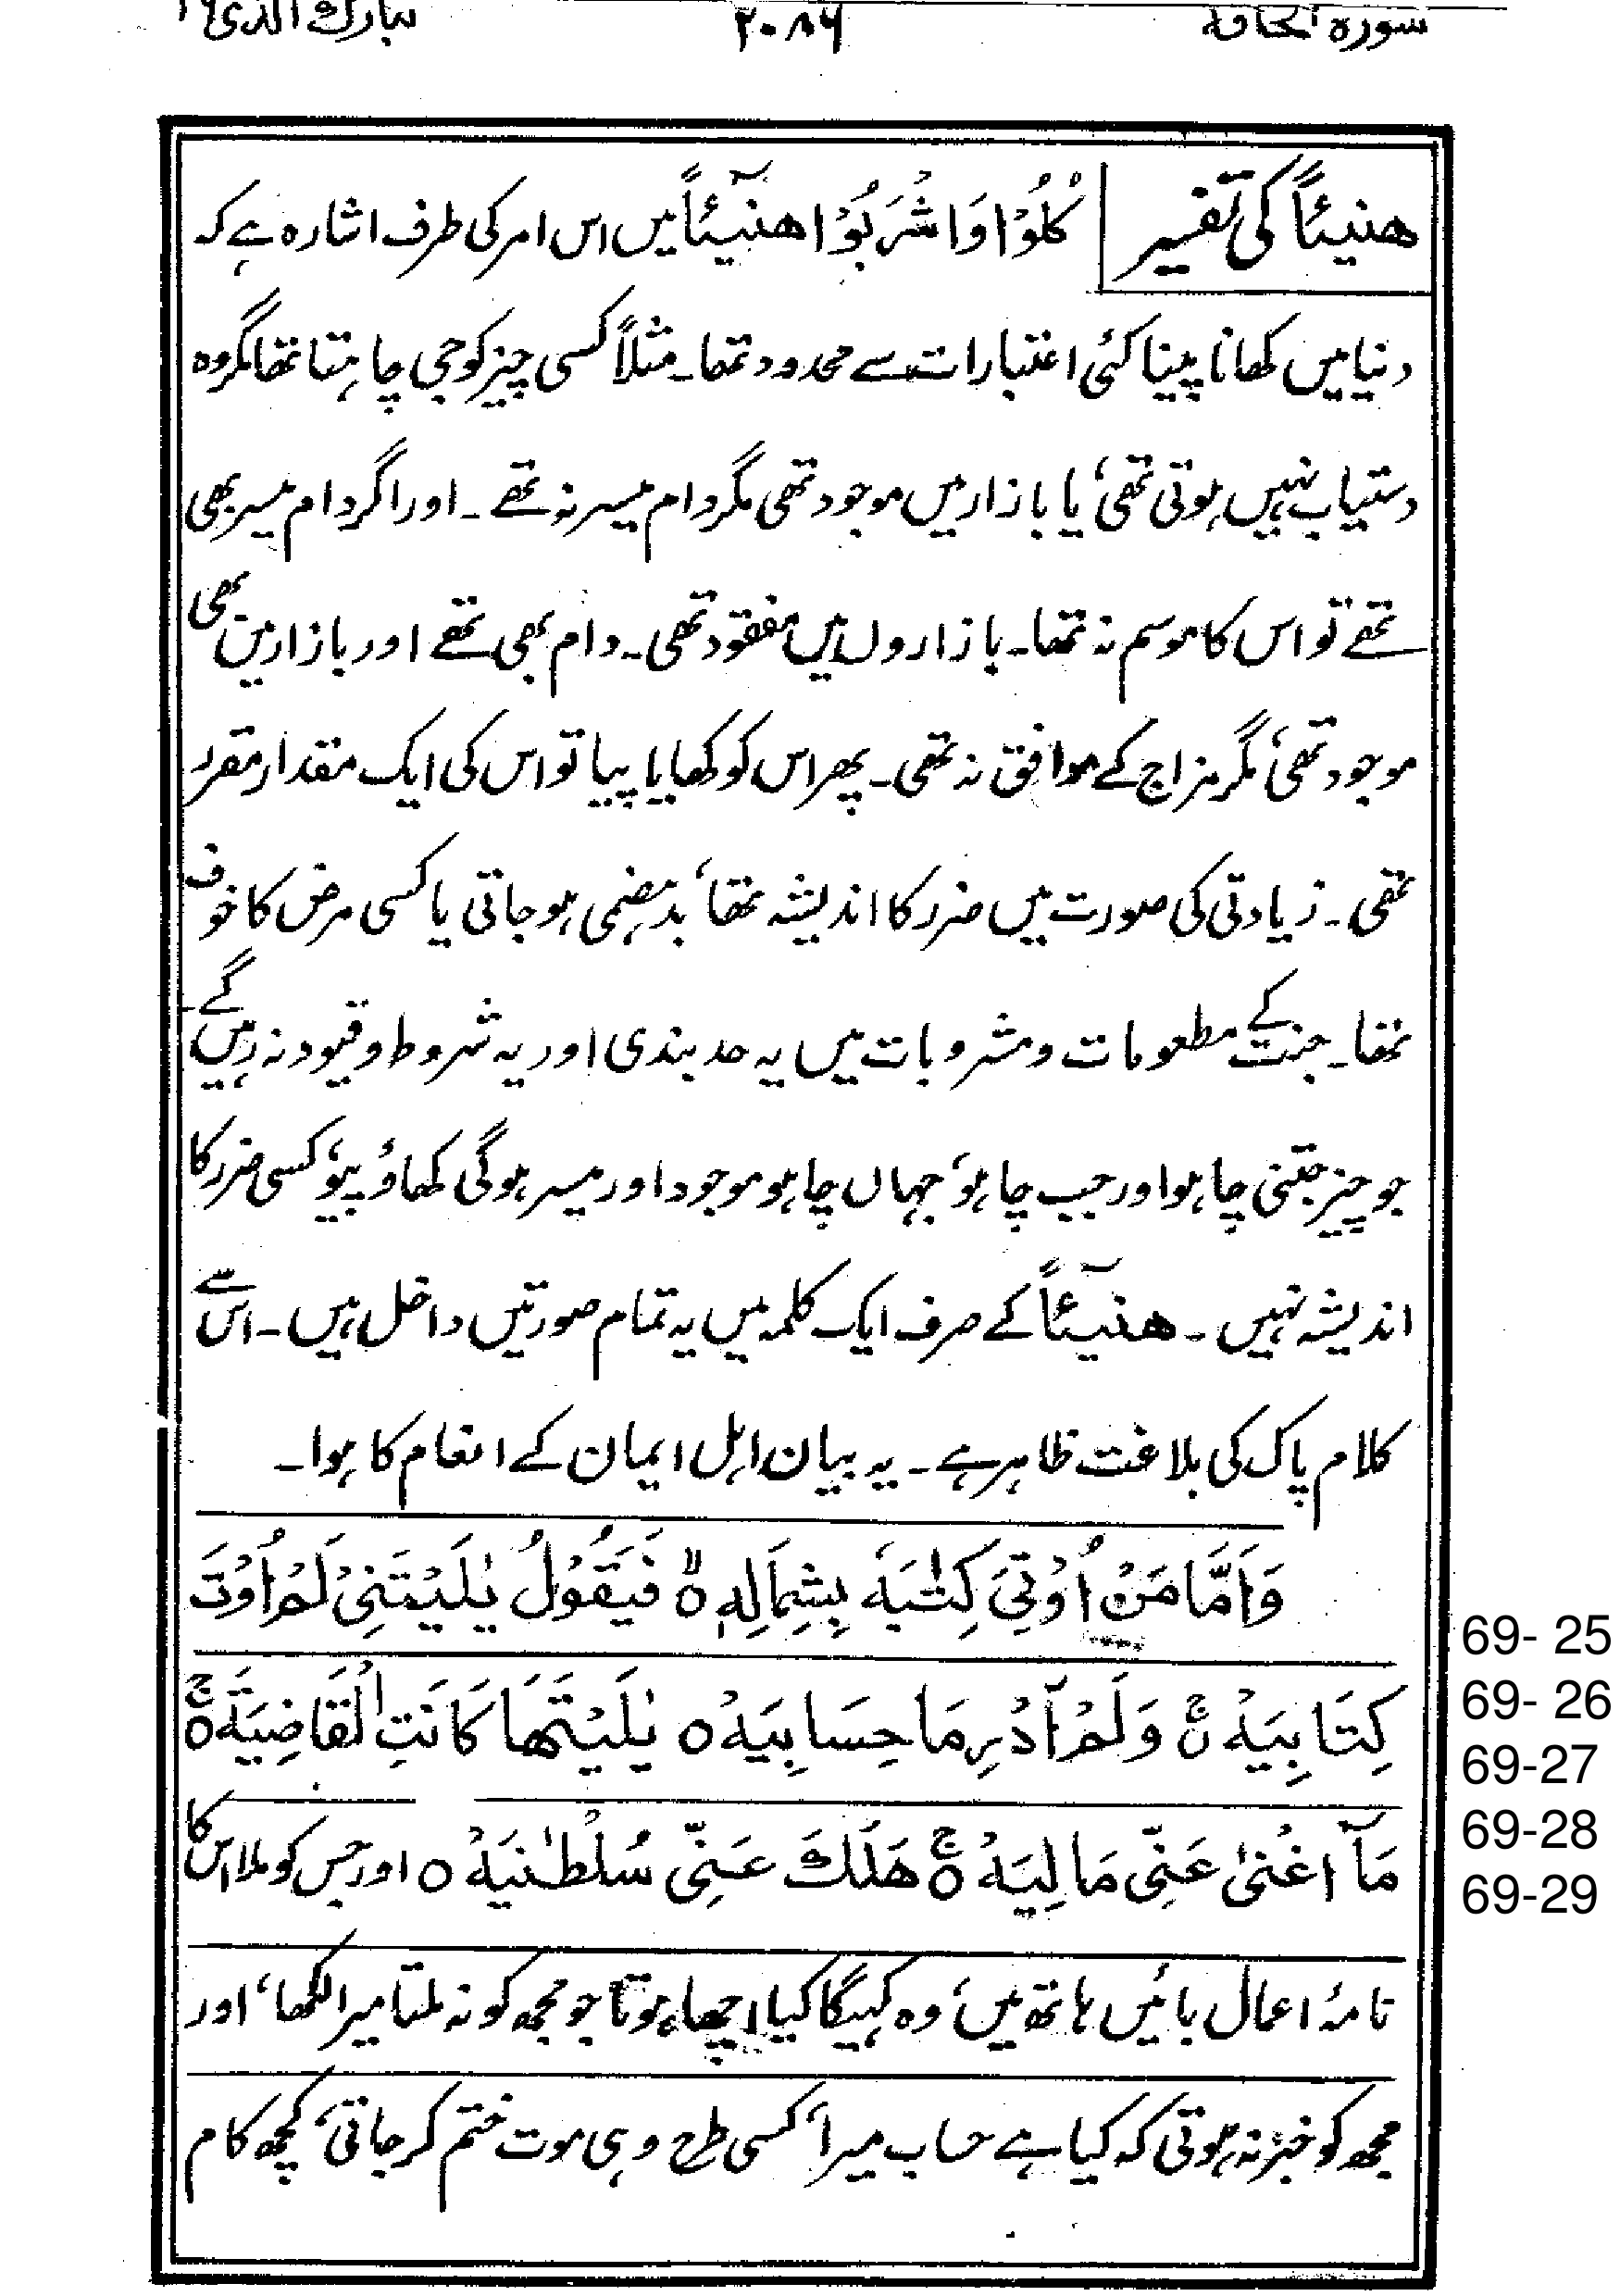 سورہ الحاقۃ ۲۰۸۶ تبارک الذی ۲۹
ھنیئاً کی تفسیر كُلُوْا وَاشْرَبُوْا هَنِيْٓـئًا میں اس امر کی طرف اشارہ ہے کہ
دنیا میں کھانا پینا کئی اعتبارات سے محدود تھا۔ مثلاً کسی چیز کو جی چاہتا تھا مگر وہ
دستیاب نہیں ہوتی تھی، یا بازار میں موجود تھی مگر دام میسر نہ تھے۔ اور اگر دام میسر بھی
تھے تو اس کا موسم نہ تھا۔ بازاروں میں مفقود تھی۔ دام بھی تھے اور بازار میں بھی
موجود تھی، مگر مزاج کے موافق نہ تھی۔ پھر اس کو کھایا پیا تو اس کی ایک مقدار مقرر
تھی۔ زیادتی کی صورت میں ضرر کا اندیشہ تھا، بدہضمی ہو جاتی یا کسی مرض کا خوف
تھا۔ جنت کے مطعومات و مشروبات میں یہ حد بندی اور یہ شروط و قیود نہ رہیں گے۔
جو چیز جتنی چاہو اور جب چاہو، جہاں چاہو موجود اور میسر ہو گی کھاؤ پیو، کسی ضرر کا
اندیشہ نہیں۔ ھنیٓئاً کے صرف ایک کلمہ میں یہ تمام صورتیں داخل ہیں۔ اس سے
کلام پاک کی بلاغت ظاہر ہے۔ یہ بیان اہل ایمان کے انعام کا ہوا۔
وَاَمَّا مَنْ اُوْتِیَ كِتٰبَهٗ بِشِمَالِهٖ ۙ فَیَقُوْلُ یٰلَیْتَنِیْ لَمْ اُوْتَ
69- 25
كِتَابِیَهْ ۚ وَلَمْ اَدْرِ مَا حِسَابِیَهْ ۝ یٰلَیْتَهَا كَانَتِ الْقَاضِیَةَ ۚ
69- 26
69-27
مَآ اَغْنٰی عَنِّیْ مَالِیَهْ ۚ هَلَكَ عَنِّیْ سُلْطٰنِیَهْ ۝ اور جس کو ملا اس کا
69-28
69-29
نامۂ اعمال بائیں ہاتھ میں، وہ کہیگا کیا اچھا ہوتا جو مجھ کو نہ ملتا میرا لکھا، اور
مجھ کو خبر نہ ہوتی کہ کیا ہے حساب میرا، کسی طرح وہی موت ختم کر جاتی، کچھ کام